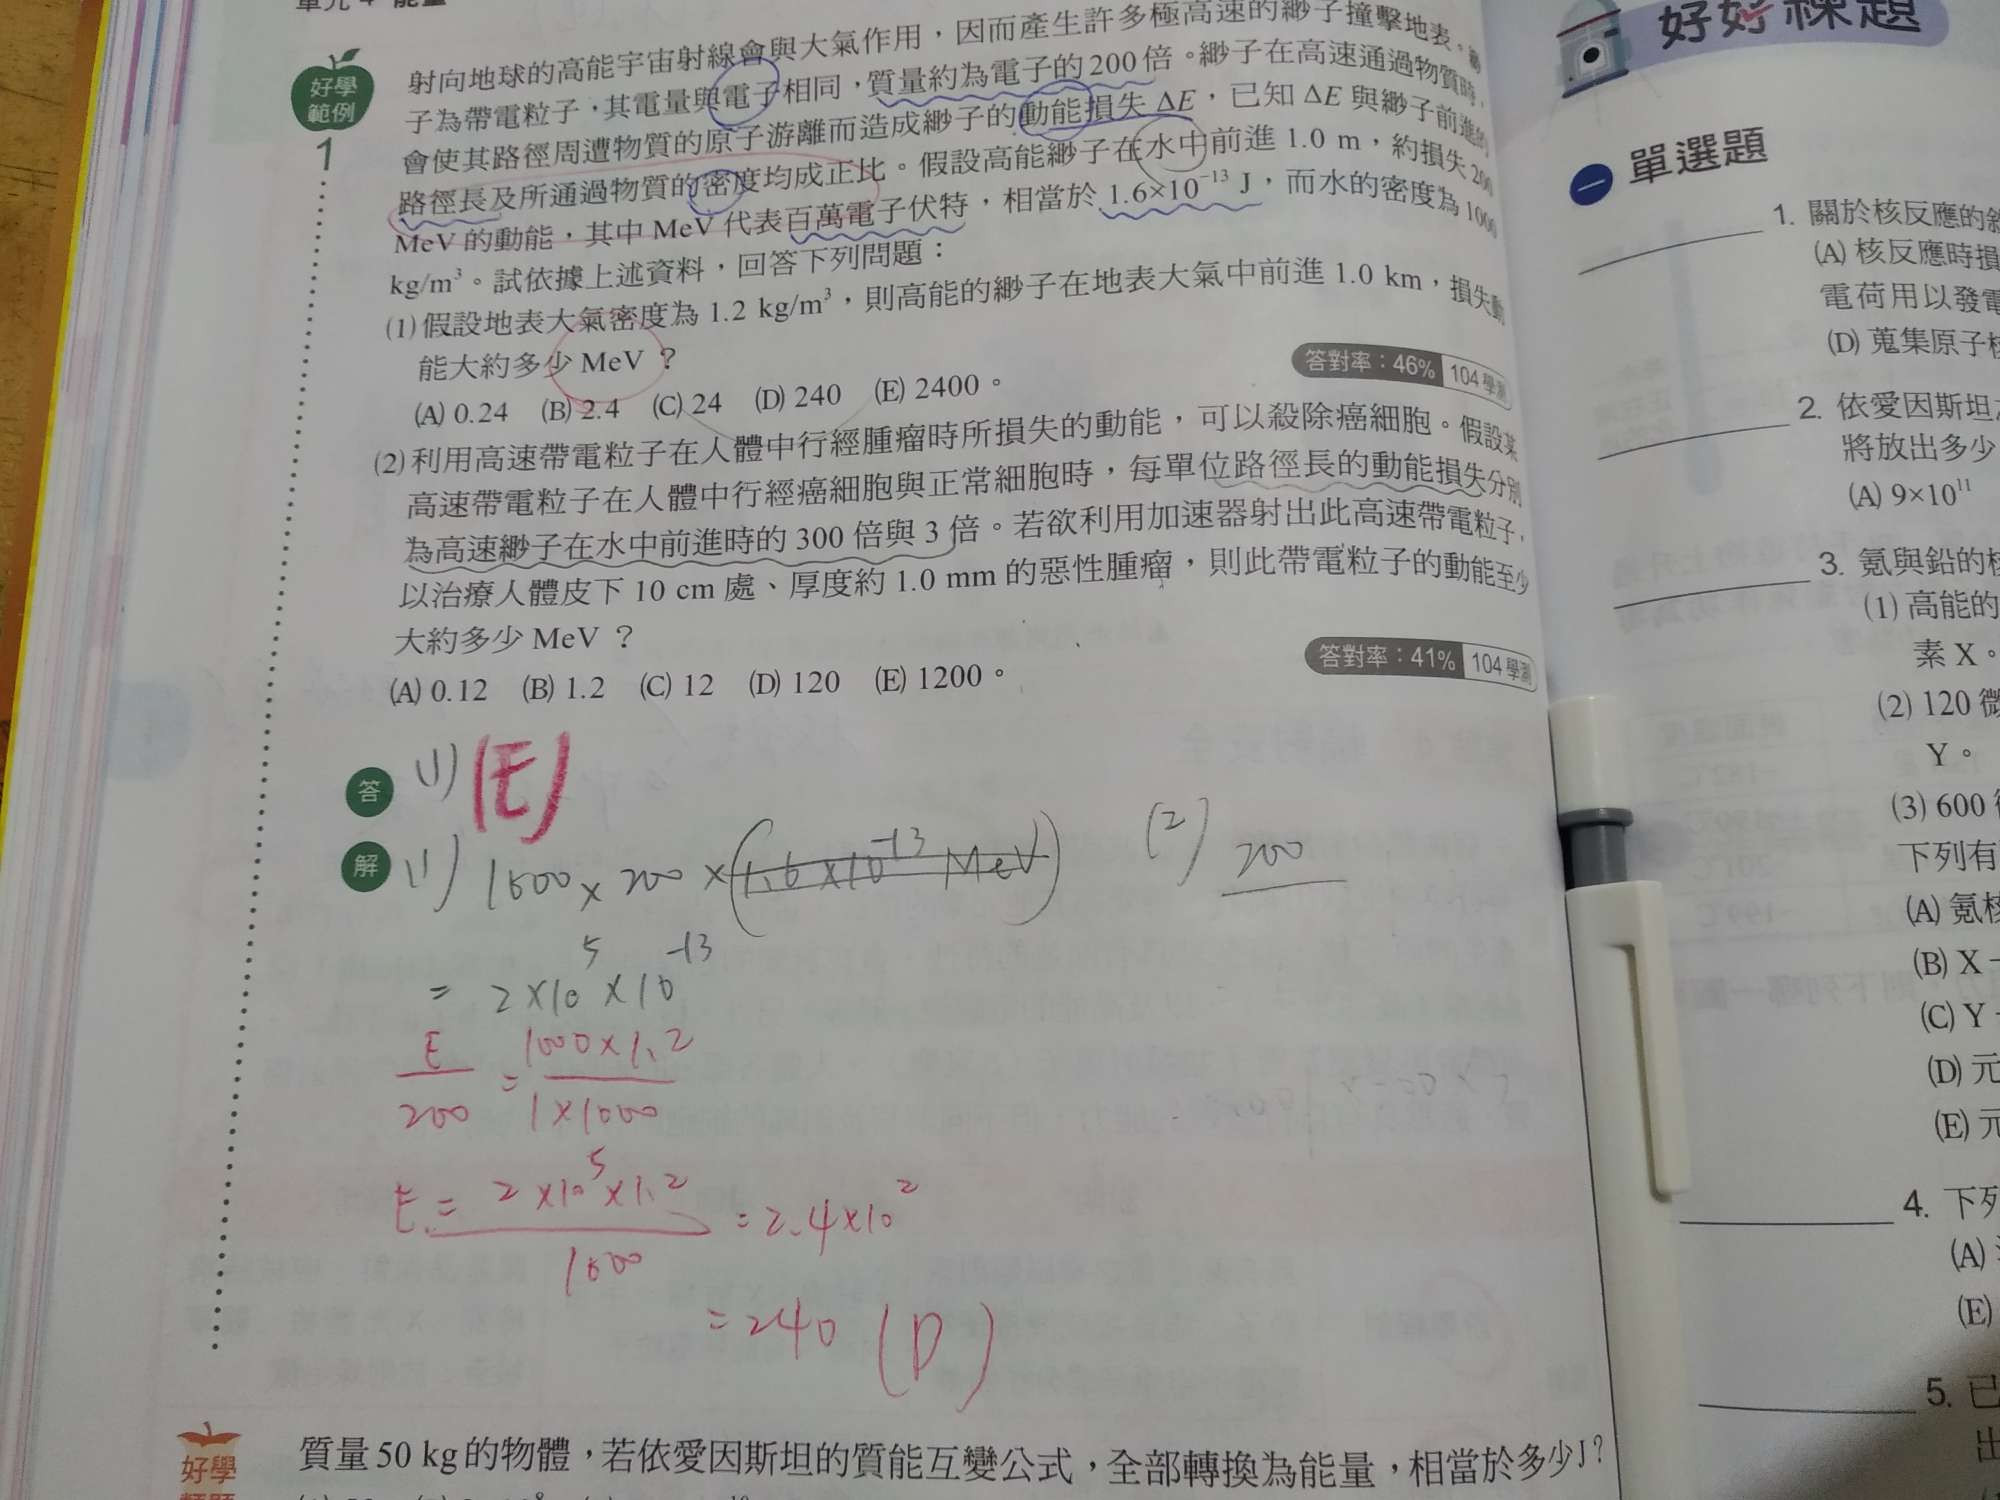 單元 4 能量
好學
範例
1
射向地球的高能宇宙射線會與大氣作用，因而產生許多極高速的緲子撞擊地表。緲
子為帶電粒子，其電量與電子相同，質量約為電子的200倍。緲子在高速通過物質時，
會使其路徑周遭物質的原子游離而造成緲子的動能損失 ΔE，已知 ΔE 與緲子前進的
路徑長及所通過物質的密度均成正比。假設高能緲子在水中前進 1.0 m，約損失 200
MeV 的動能，其中 MeV 代表百萬電子伏特，相當於 1.6×10⁻¹³ J，而水的密度為 1000
kg/m³。試依據上述資料，回答下列問題：
(1) 假設地表大氣密度為 1.2 kg/m³，則高能的緲子在地表大氣中前進 1.0 km，損失動
能大約多少 MeV？
答對率：46% 104 學測
(A) 0.24 (B) 2.4 (C) 24 (D) 240 (E) 2400。
(2) 利用高速帶電粒子在人體中行經腫瘤時所損失的動能，可以殺除癌細胞。假設某
高速帶電粒子在人體中行經癌細胞與正常細胞時，每單位路徑長的動能損失分別
為高速緲子在水中前進時的 300 倍與 3 倍。若欲利用加速器射出此高速帶電粒子，
以治療人體皮下 10 cm 處、厚度約 1.0 mm 的惡性腫瘤，則此帶電粒子的動能至少
大約多少 MeV？
答對率：41% 104 學測
(A) 0.12 (B) 1.2 (C) 12 (D) 120 (E) 1200。
答 (1) (E)
解 (1) 1000 × 200 × (1.6 × 10⁻¹³ MeV)
= 2×10⁵ × 10⁻¹³
E/200 = 1000×1.2/1×1000
E = 2×10⁵×1.2/1000 = 2.4×10²
= 240 (D)
(2) 200
好學
質量 50 kg 的物體，若依愛因斯坦的質能互變公式，全部轉換為能量，相當於多少 J？
好好練題
一 單選題
1. 關於核反應的敘
(A) 核反應時損
電荷用以發電
(D) 蒐集原子核
2. 依愛因斯坦
將放出多少
(A) 9×10¹¹
3. 氪與鉛的核
(1) 高能的
素 X。
(2) 120 微
Y。
(3) 600
下列有
(A) 氪核
(B) X
(C) Y
(D) 元
(E) 元
4. 下列
(A)
(E)
5. 已
出